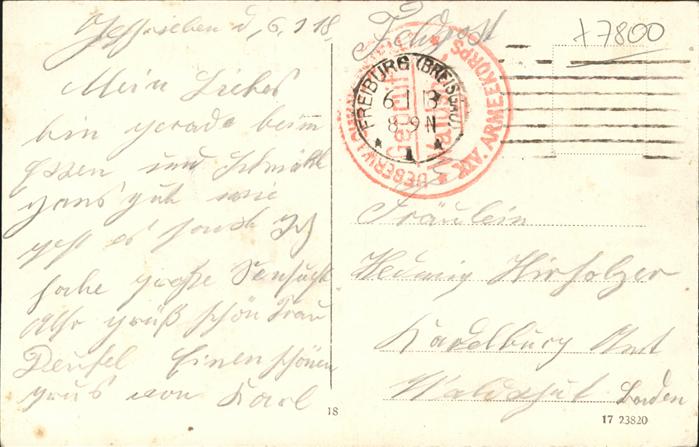 Geschrieben d, 6, 1 18
Mein Liebes
bin gerade beim
Essen und schmekt
ganz gut wie
geht es sonst Ich
habe große Sensucht
grüß schön Frau
Deufel Einen schönen
gruß von Karl
18
Feldpost
+7800
FREIBURG (BREISGAU)
6 1 18
8-9 N
XIV. ARMEEKORPS
Fräulein
Hedwig Hirholzer
Kadelburg Amt
Waldshut Baden
17 23820